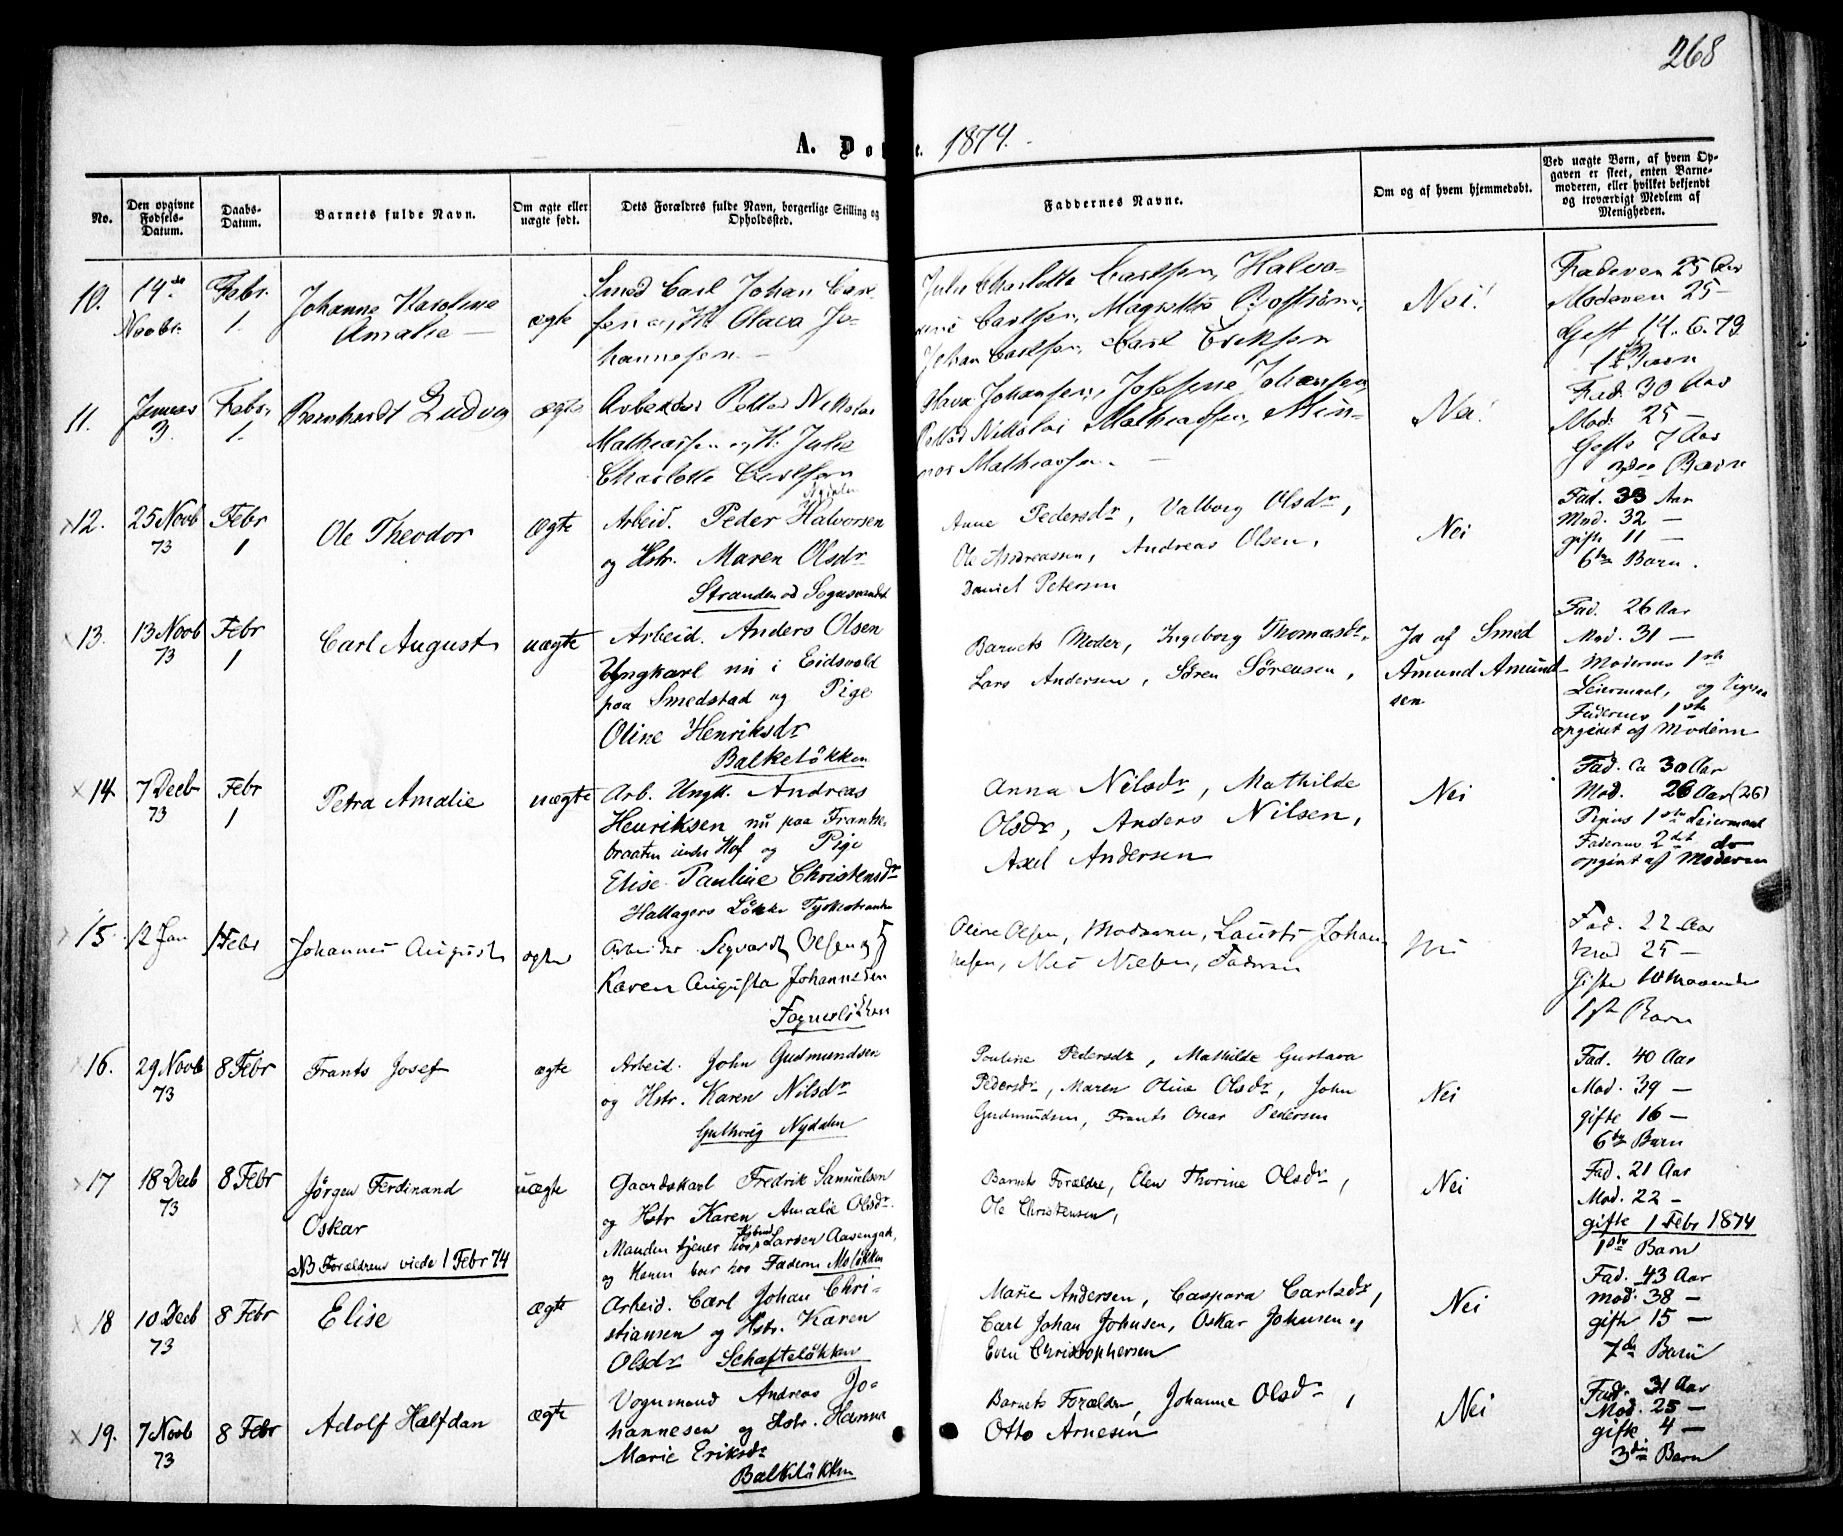 268
A. Do e. 1874.
No.
Den opgivne Fødsels-Datum.
Daabs-Datum.
Barnets fulde Navn.
Om ægte eller uægte født.
Dets Forældres fulde Navn, borgerlige Stilling og Opholdssted.
Faddernes Navne.
Om og af hvem hjemmedøbt.
Ved uægte Børn, af hvem Op-
gaven er skeet, enten Barne-
moderen, eller hvilket bekjendt
og troværdigt Medlem af
Menigheden.
10.
14de Novbr.
Febr. 1.
Johanne Karoline
Amalie
ægte
Smed Carl Johan Carl-
sen og H. Olava Jo-
hannesen
Julie Charlotte Carlsen, Halvo-
Carlsen, Magrethe Bostrøm,
Johan Carlsen, Carl Eriksen
Nei!
Faderen 25 Aar
Moderen 25 —
Gift 14. 6. 73
1ste Barn
11.
Januar 3.
Febr. 1.
Bernhardt Ludvig
ægte
Arbeider Petter Nikolai
Mathiassen og H. Julie
Charlotte Carlsen
Olava Johansen, Josefine Johansen,
Petter Nikolai Mathiassen,
Mathiassen.
Nei!
Fad. 30 Aar
Mod. 25 —
Gifte 7 Aar
Barn
12.
25 Novb 73
Febr 1
Ole Theodor
ægte
Nydalen
Arbeid. Peder Halvorsen
og Hstr. Maren Olsdr
Stranden
Anne Pedersdr, Valborg Olsdr,
Ole Andreassen, Andreas Olsen,
Daniel Petersen
Nei
Fad. 33 Aar
Mod. 32 —
gifte 11 —
6te Barn.
13.
13 Novb 73
Febr 1
Carl August
uægte
Arbeid. Anders Olsen
Ungkarl nu i Eidsvold
paa Smedstad og Pige
Oline Henriksdr
Balkeløkken
Barnets Moder, Ingeborg Thomasdr,
Lars Andersen, Søren Sørensen,
Ja af Smed
Amund Amund-
sen
Fad. 26 Aar
Mod. 31 —
Moderens 1ste
Leiermaal, og
Faderens 1ste
opgivet af Moderen
14
7 Decb 73
Febr 1
Petra Amalie
uægte
Arb. Ungk. Andreas
Henriksen nu paa
braaten under Hof og Pige
Elise Pauline Christensdr
Hallagers Løkke
Anna Nilsdr, Mathilde
Olsdr, Anders Nilsen,
Axel Andersen
Nei
Fad. ca 30 Aar
Mod. 26 Aar (26)
Pigens 1ste Leiermaal
Faderens 2det do
opgivet af Moderen
15.
12 Jan
1 Febr
Johannes August
ægte
Arbeider Segvardt Olsen og
Karen Augusta Johannesen
Fagerløkken
Oline Olsen, Moderen, Laurits Johan-
nesen, Nils Nielsen, Faderen
Nei
Fad. 22 Aar
Mod 25 —
Gifte 10 Maaneder
1ste Barn
16.
29 Novb 73
8 Febr
Frants Josef
ægte
Arbeid. John Gudmundsen
og Hstr. Karen Nilsdr
Gulhvig Nydalen
Pauline Pedersdr, Mathilde Gustava
Pedersdr, Maren Oline Olsdr, John
Gudmundsen, Frants Oscar Pedersen
Nei
Fad. 40 Aar
Mod. 39 —
gifte 16 —
6te Barn
17
18 Decb 73
8 Febr
Jørgen Ferdinand
Oskar
NB Forældrene viede 1 Febr 74
uægte
Gaardskarl Fredrik Samuelsen
og Hstr Karen Amalie Olsdr.
Manden tjener hos Larsen Aasengat,
og Konen bor hos Faderen Moløkken
Barnets Forældre, Elen Thorine Olsdr,
Ole Christensen,
Nei
Fad. 21 Aar
Mod. 22 —
gifte 1 Febr 1874
1ste Barn
18
10 Decb 73
8 Febr
Elise
ægte
Arbeid. Carl Johan Chri-
stiansen og Hstr. Karen
Olsdr Schafteløkken
Marie Andersen, Caspara Carlsdr,
Carl Johan Johnsen, Oskar Johnsen,
Even Christophersen
Nei
Fad. 43 Aar
Mod. 38 —
gifte 15 —
7de Barn
19.
7 Novb 73
8 Febr
Adolf Halfdan
ægte
Vognmand Andreas Jo-
hannesen og Hstr. Hanna
Marie Eriksdr
Balkeløkken
Barnets Forældre, Johanne Olsdr,
Otto Arnesen
Nei
Fad. 31 Aar
Mod. 25 —
gifte 4 —
3die Barn